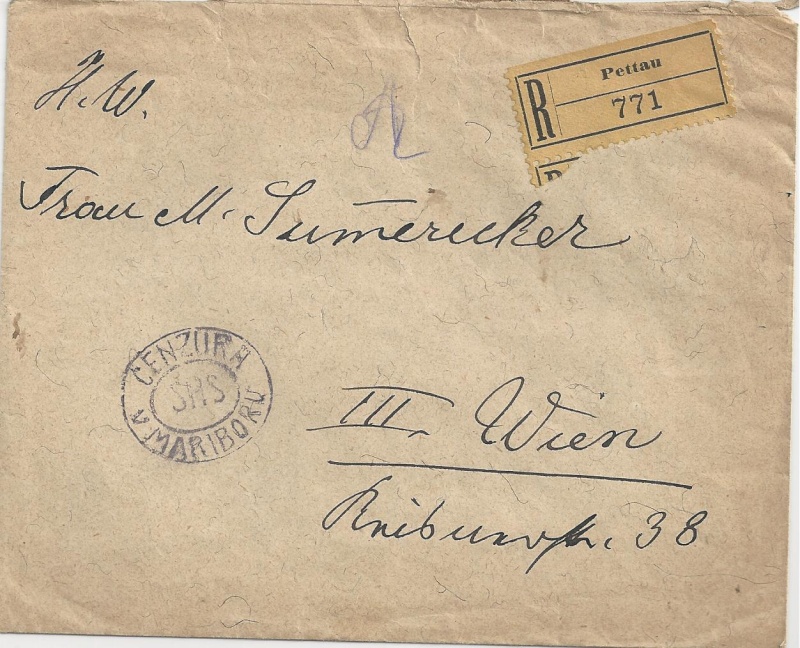 H. W.
R Pettau
771
Frau M. Sumerecker
CENZURA
SHS
V MARIBORU
III. Wien
38